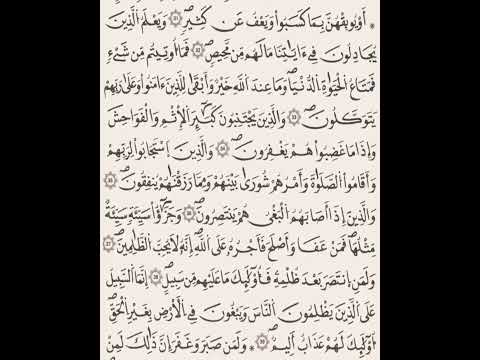 * أَوْ يُوبِقْهُنَّ بِمَا كَسَبُواْ وَيَعْفُ عَن كَثِيرٍ ۖ ٣١ وَيَعْلَمُ الَّذِينَ
يُجَادِلُونَ فِي ءَايَاتِنَا مَا لَهُم مِّن مَّحِيصٍ ۖ ٣٢ فَمَا أُوتِيتُم مِّن شَيْءٍ
فَمَتَاعُ الْحَيَوٰةِ الدُّنْيَا ۖ وَمَا عِندَ اللَّهِ خَيْرٌ وَأَبْقَىٰ لِلَّذِينَ ءَامَنُواْ وَعَلَىٰ رَبِّهِمْ
يَتَوَكَّلُونَ ۖ ٣٣ وَالَّذِينَ يَجْتَنِبُونَ كَبَٰئِرَ الْإِثْمِ وَالْفَوَٰحِشَ
وَإِذَا مَا غَضِبُواْ هُمْ يَغْفِرُونَ ۖ ٣٤ وَالَّذِينَ اسْتَجَابُواْ لِرَبِّهِمْ
وَأَقَامُواْ الصَّلَوٰةَ وَأَمْرُهُمْ شُورَىٰ بَيْنَهُمْ وَمِمَّا رَزَقْنَٰهُمْ يُنفِقُونَ ۖ ٣٥
وَالَّذِينَ إِذَا أَصَابَهُمُ الْبَغْيُ هُمْ يَنتَصِرُونَ ۖ ٣٦ وَجَزَٰؤُاْ سَيِّئَةٍ سَيِّئَةٌ
مِّثْلُهَا ۖ فَمَنْ عَفَا وَأَصْلَحَ فَأَجْرُهُ عَلَى اللَّهِ ۖ إِنَّهُ لَا يُحِبُّ الظَّٰلِمِينَ ۖ ٣٧
وَلَمَنِ انتَصَرَ بَعْدَ ظُلْمِهِ فَأُوْلَٰئِكَ مَا عَلَيْهِم مِّن سَبِيلٍ ۖ ٣٨ إِنَّمَا السَّبِيلُ
عَلَى الَّذِينَ يَظْلِمُونَ النَّاسَ وَيَبْغُونَ فِي الْأَرْضِ بِغَيْرِ الْحَقِّ ۖ
أُوْلَٰئِكَ لَهُمْ عَذَابٌ أَلِيمٌ ۖ ٣٩ * وَلَمَن صَبَرَ وَغَفَرَ إِنَّ ذَٰلِكَ لَمِنْ